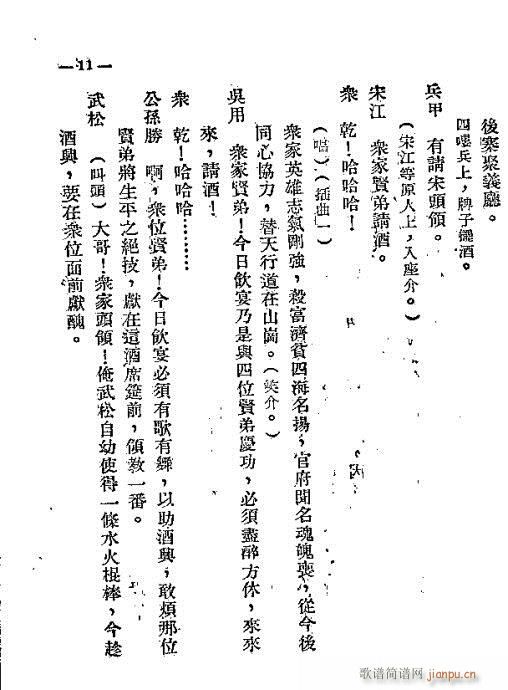 —11—
後寨聚義廳。
四嘍兵上，牌子擺酒。
兵甲　有請宋頭領。
（宋江等原人上，入座介。）
宋江　衆家賢弟請酒。
衆　乾！哈哈哈！
（唱）（插曲一）
衆家英雄志氣剛強，殺富濟貧四海名揚，官府聞名魂魄喪，從今後
同心協力，替天行道在山崗。（笑介。）
吳用　衆家賢弟！今日飲宴乃是與四位賢弟慶功，必須盡醉方休，來來
來，請酒！
衆　乾！哈哈哈………
公孫勝　啊，衆位賢弟！今日飲宴必須有歌有舞，以助酒興，敢煩那位
賢弟將生平之絕技，獻在這酒席筵前，領教一番。
武松　（叫頭）大哥！衆家頭領！俺武松自幼使得一條水火棍棒，今趁
酒興，要在衆位面前獻醜。
歌谱简谱网
jianpu.cn